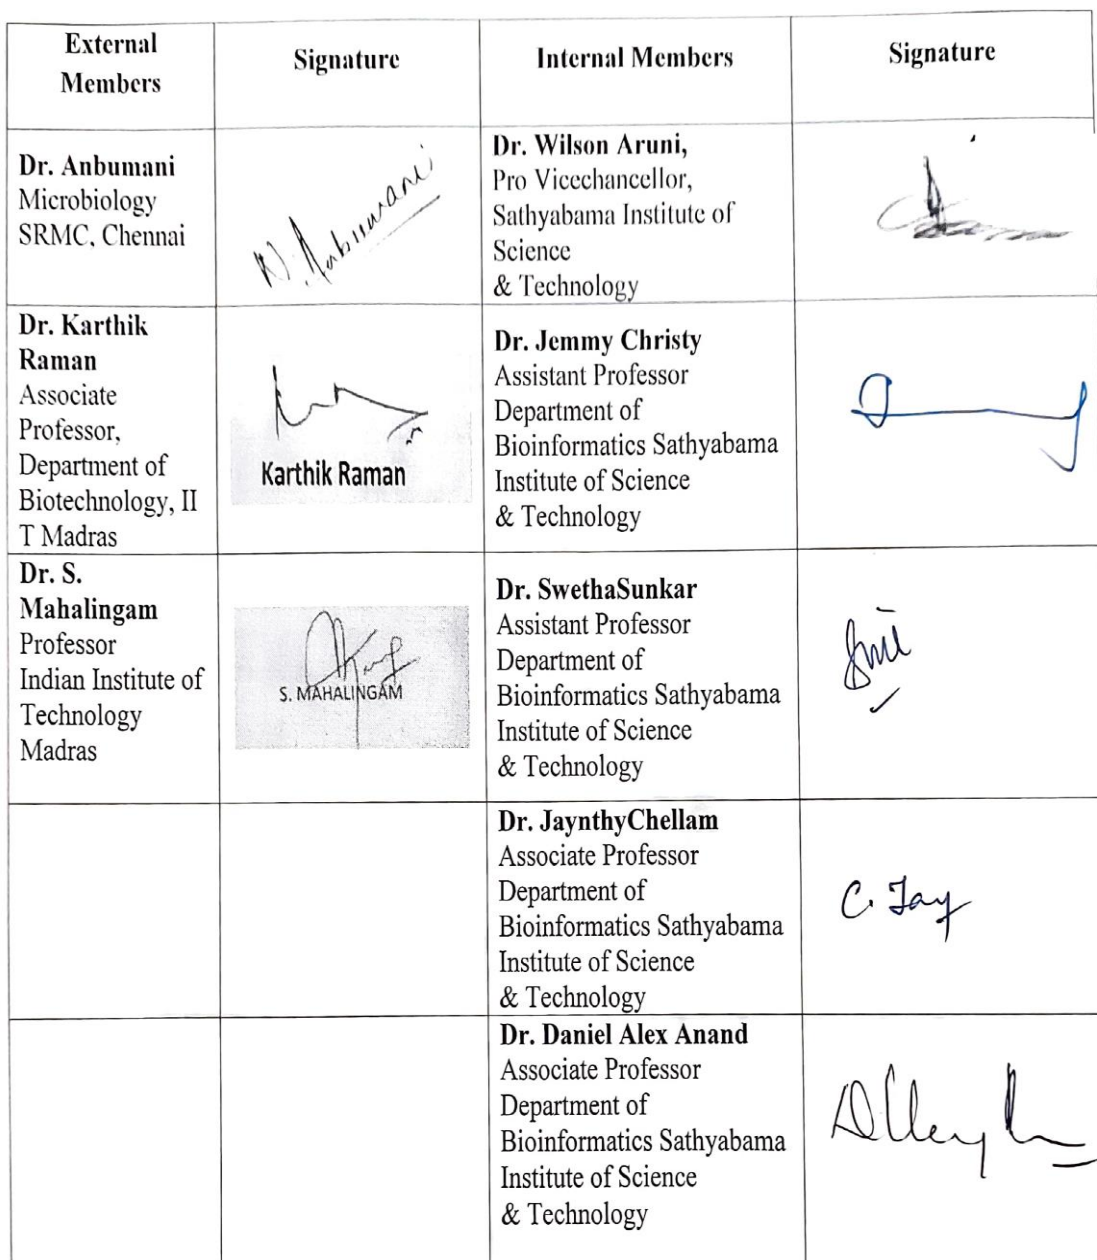 External
Members
Signature
Internal Members
Signature
Dr. Anbumani
Microbiology
SRMC, Chennai
N. Anbumani
Dr. Wilson Aruni,
Pro Vicechancellor,
Sathyabama Institute of
Science
& Technology
Dr. Karthik
Raman
Associate
Professor,
Department of
Biotechnology, II
T Madras
Karthik Raman
Dr. Jemmy Christy
Assistant Professor
Department of
Bioinformatics Sathyabama
Institute of Science
& Technology
Dr. S.
Mahalingam
Professor
Indian Institute of
Technology
Madras
S. MAHALINGAM
Dr. SwethaSunkar
Assistant Professor
Department of
Bioinformatics Sathyabama
Institute of Science
& Technology
Dr. JaynthyChellam
Associate Professor
Department of
Bioinformatics Sathyabama
Institute of Science
& Technology
C. Jay
Dr. Daniel Alex Anand
Associate Professor
Department of
Bioinformatics Sathyabama
Institute of Science
& Technology